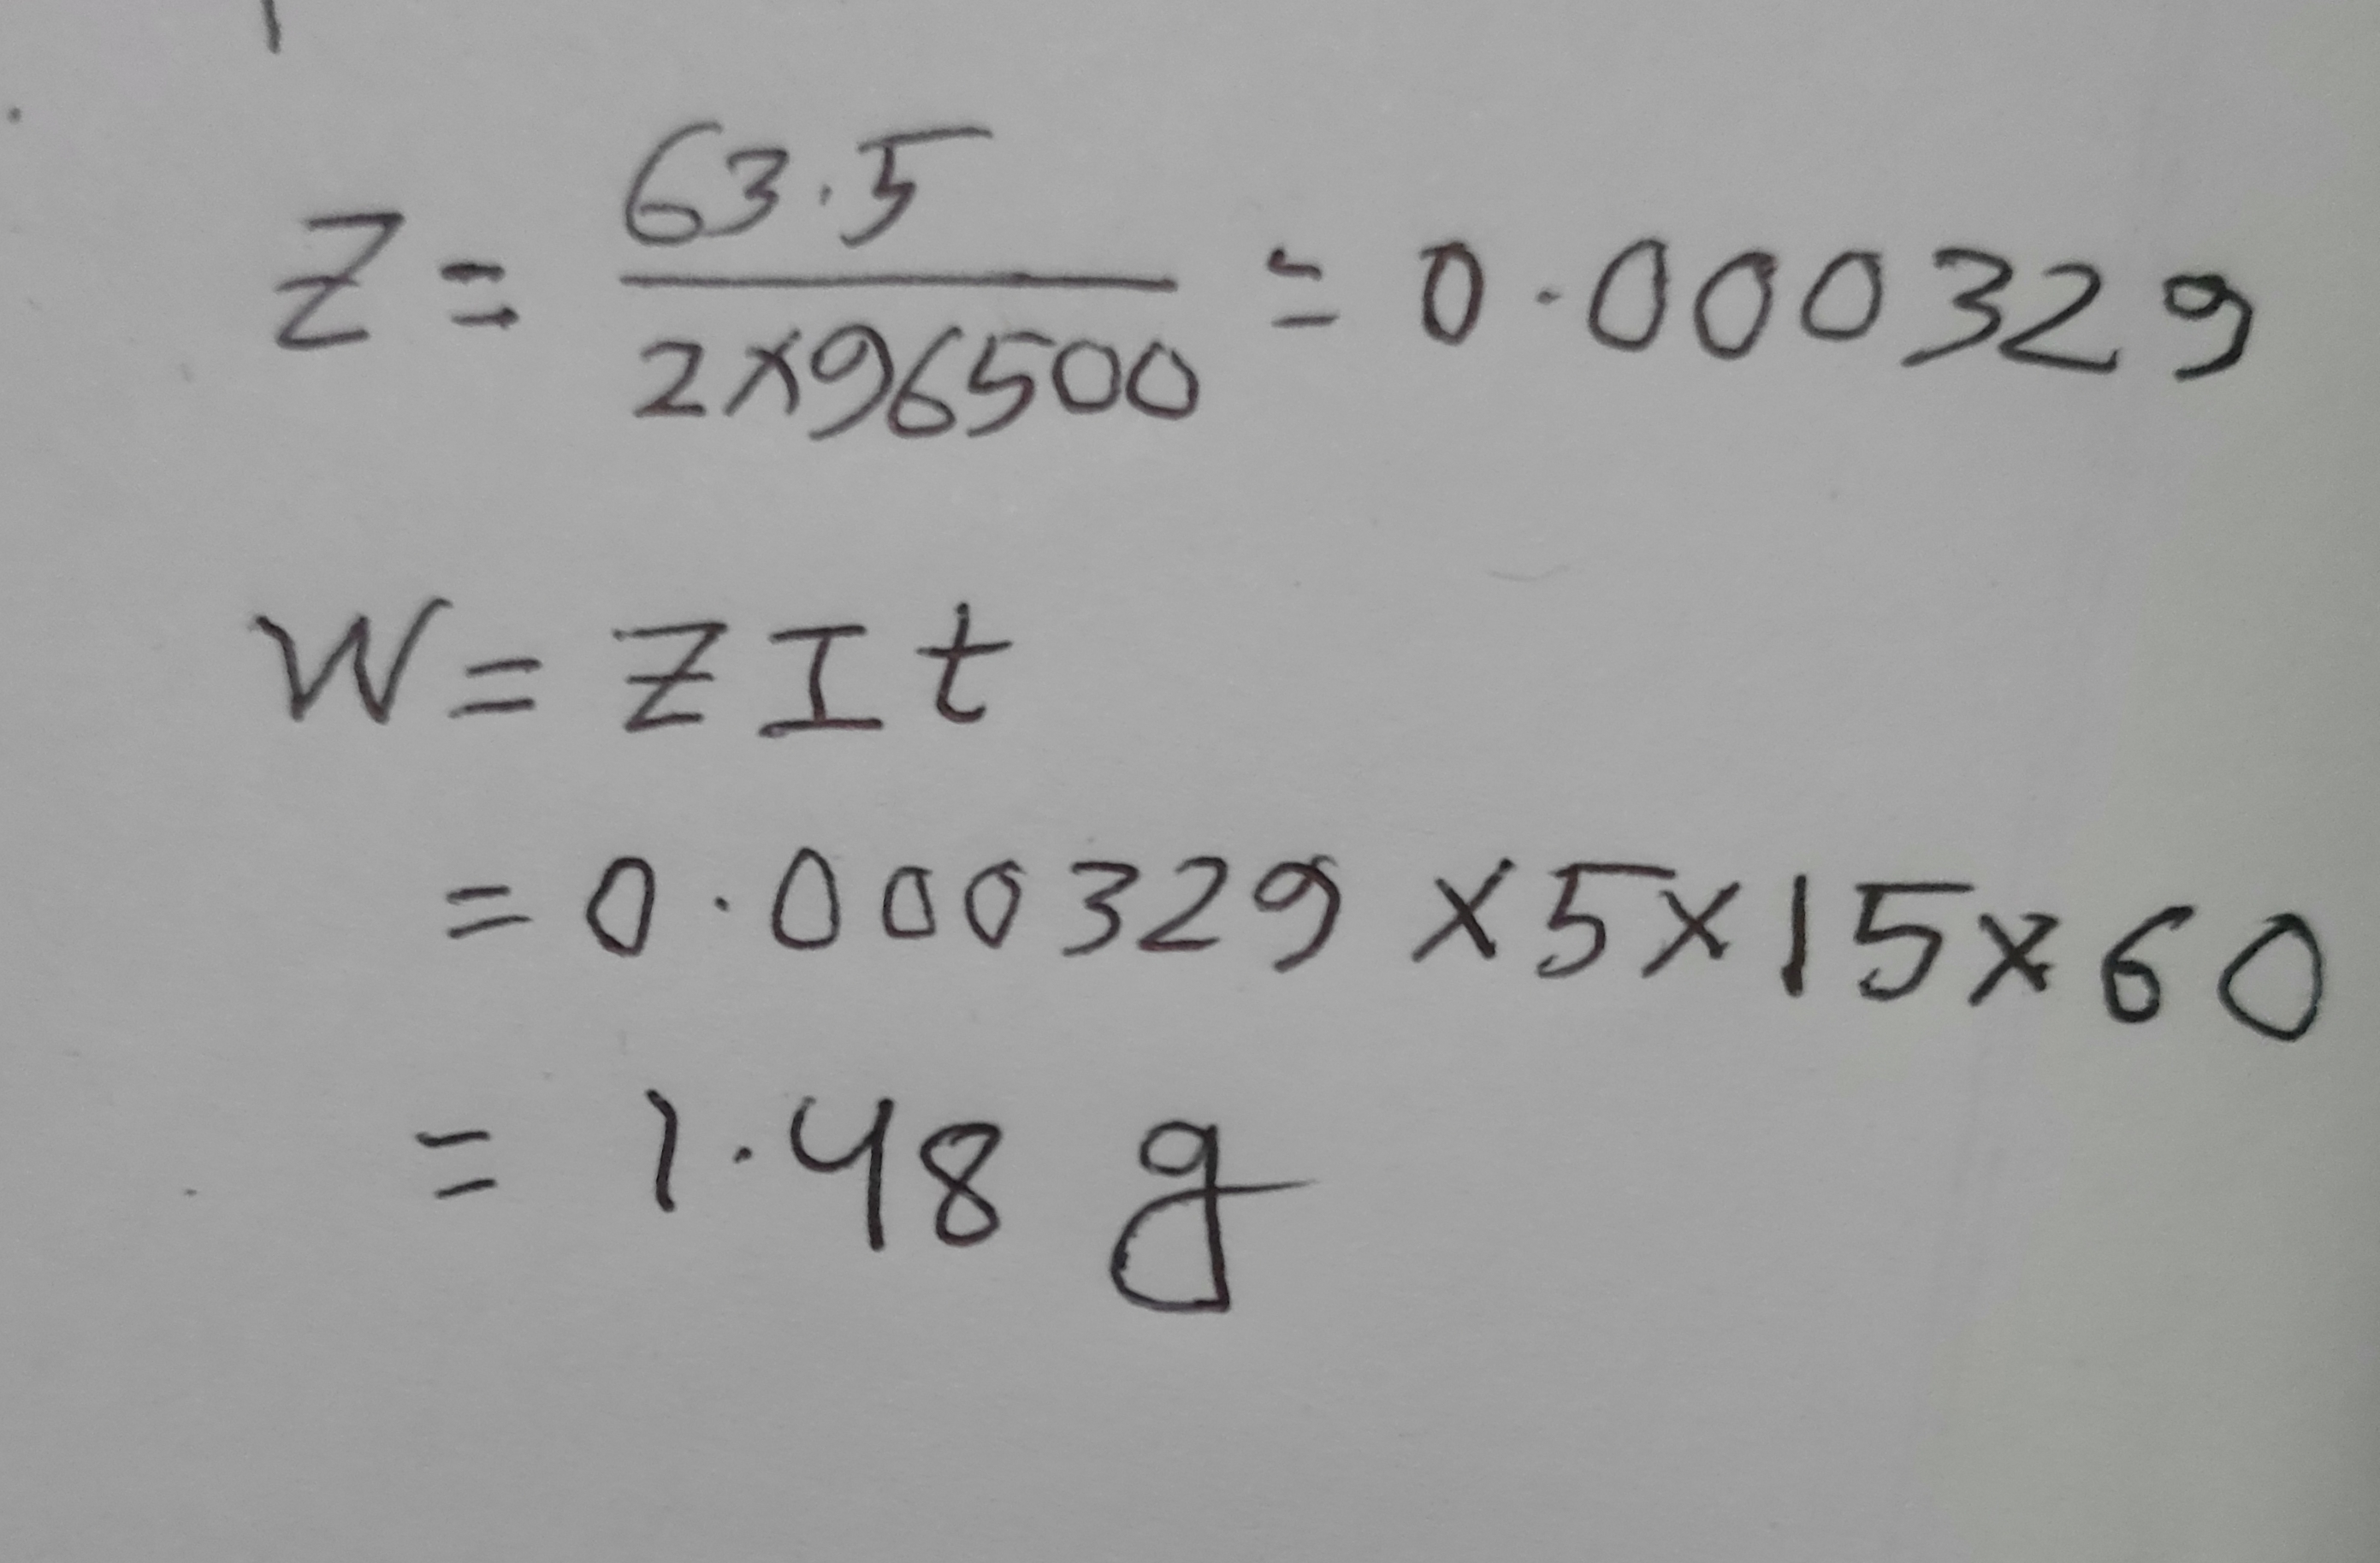 Z = 63.5 / 2×96500 = 0.000329
W = Z I t
= 0.000329 ×5×15×60
= 1.48 g